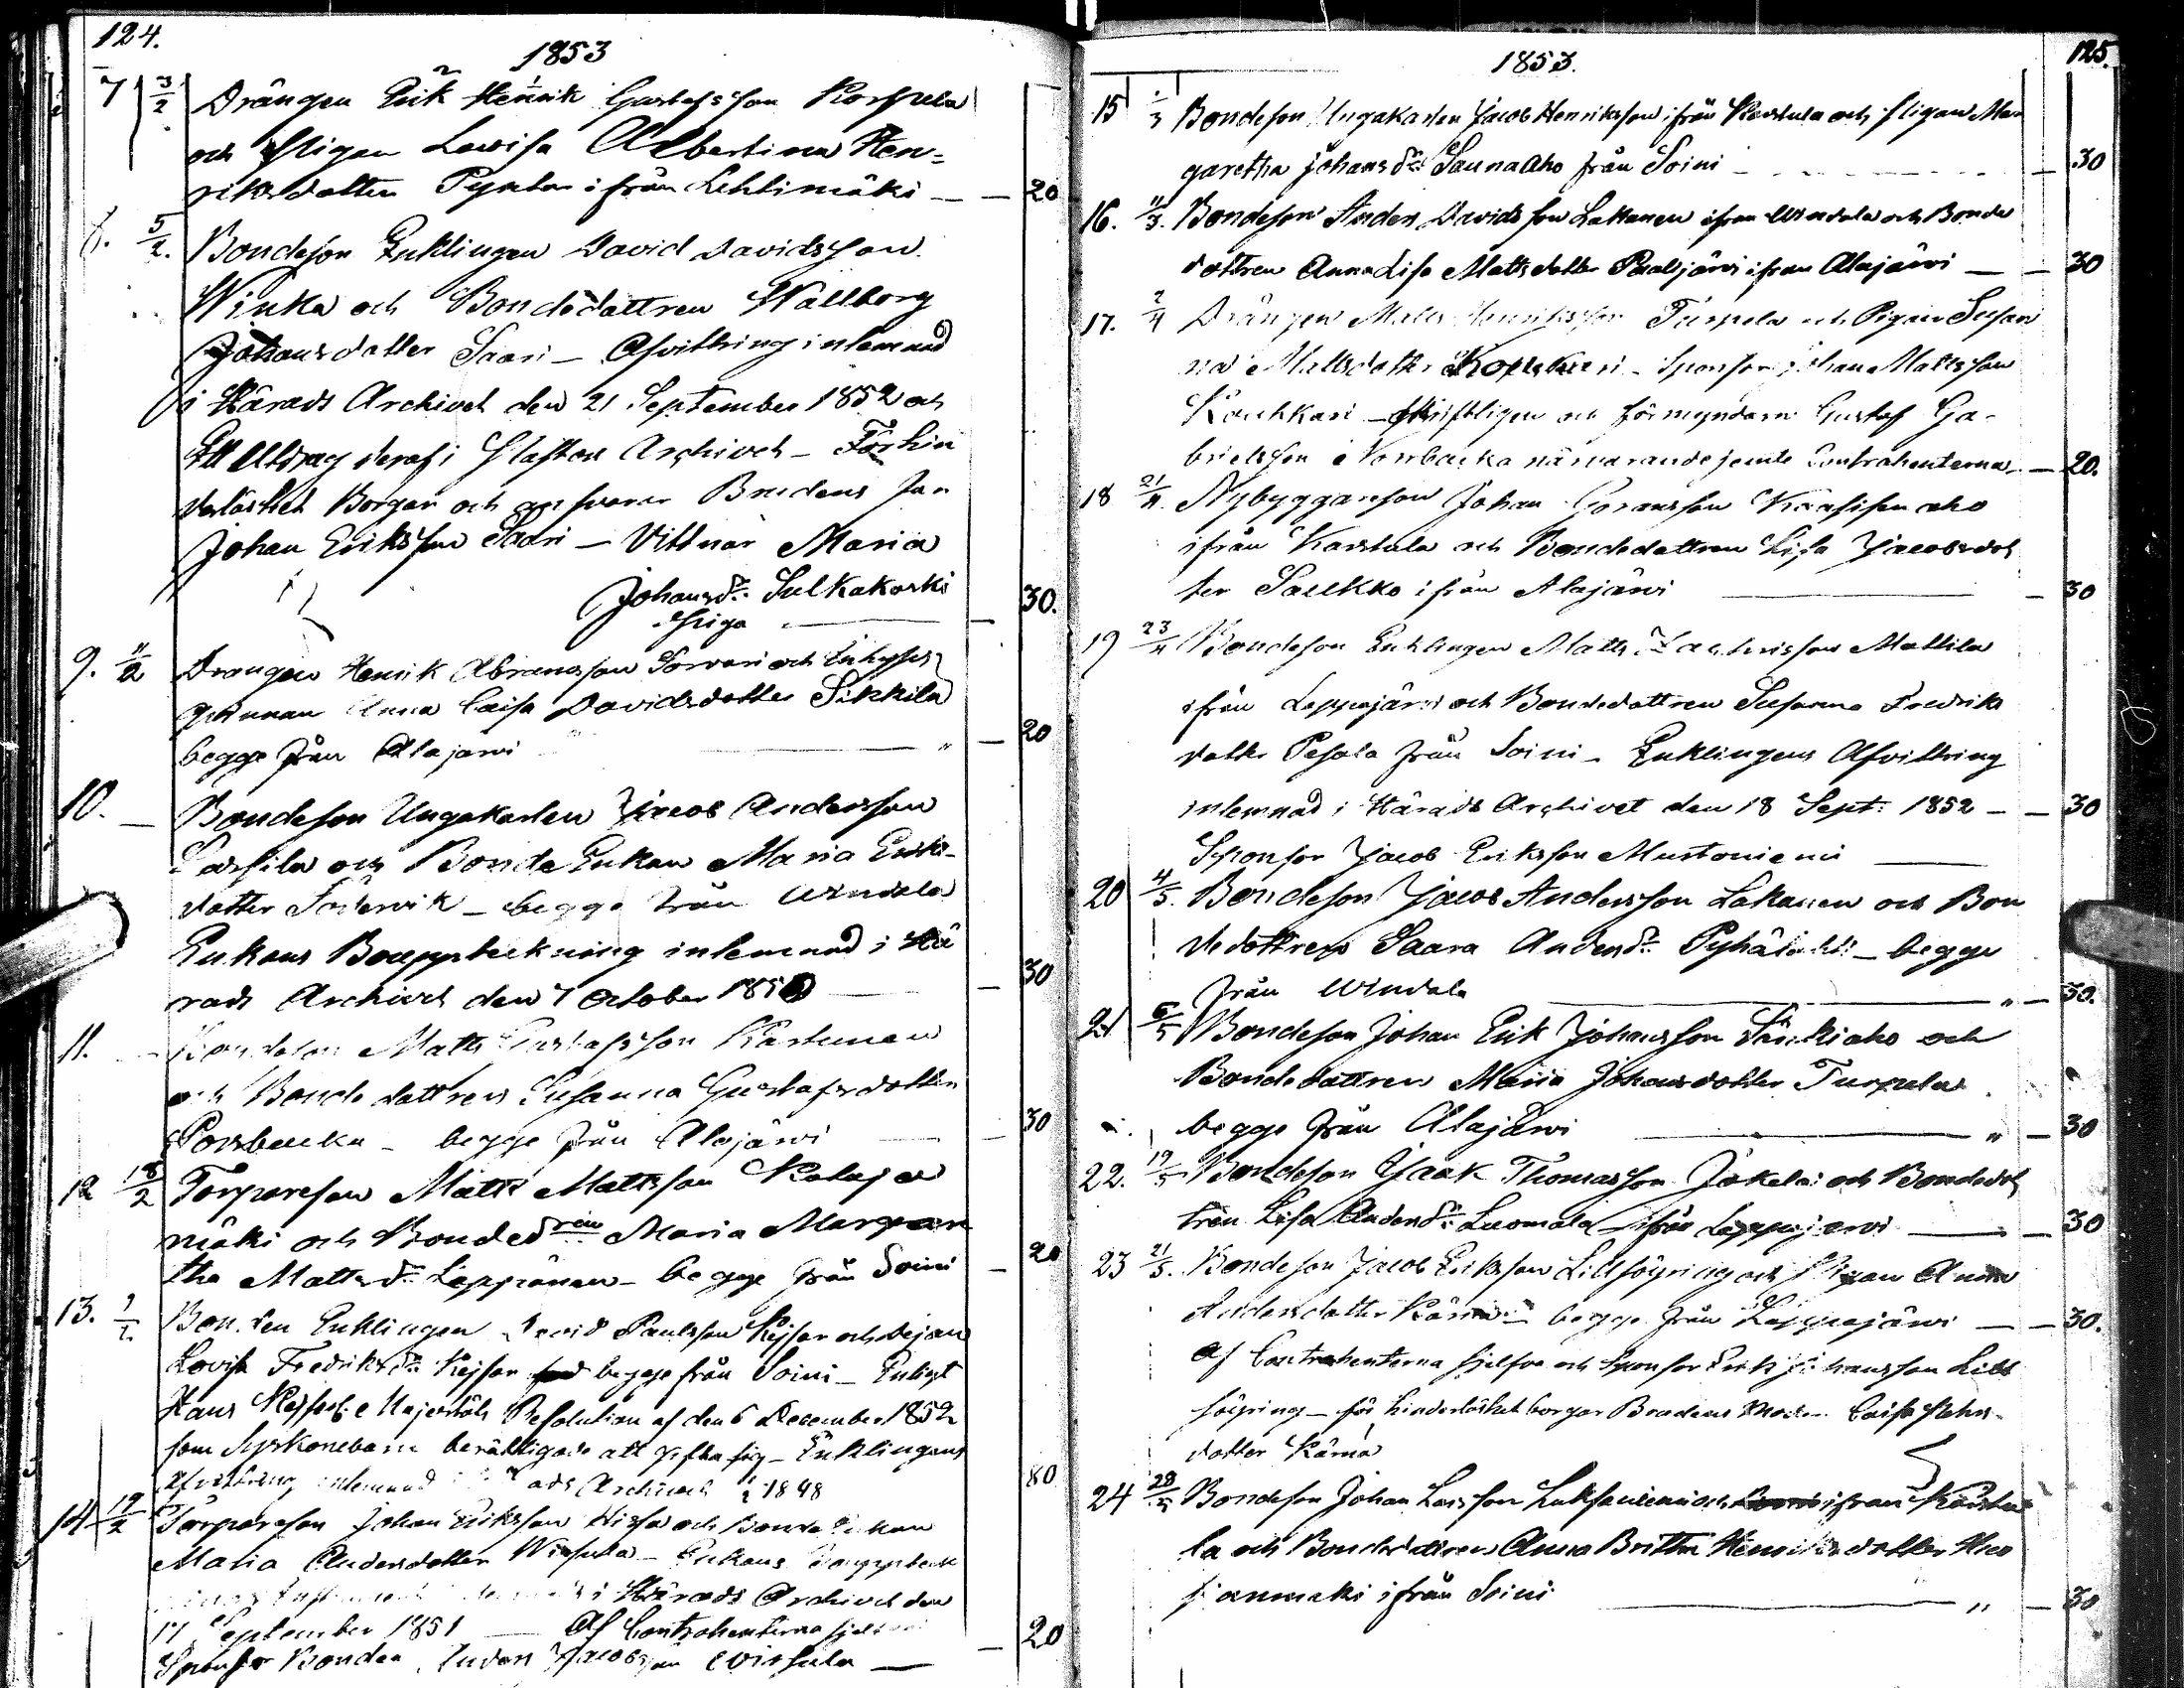 124.
1853
7 3/2 Drängen Erik Henrik Gustafsson Korpela
och Pigan Lowisa Albertina Hen=
riksdotter Pynttar ifrån Lehtimäki — — 20
8. 5/2. Bondeson Enklingen David Davidsson
Winka och Bondedottren Wallborg
Johansdotter Saari — Afvittring inlemnad
i Härads Archivet den 21 September 1852 och
Ett Utdrag deraf i Pastors Archivet — För hin
derlöshet Borgar och ansvarar Brudens Far
Johan Eriksson Saari — Vittnar Maria
Johansdr. Sulkakoski
Piga — 30.
9. 11/2 Drängen Henrik Abramsson Sorvari och Inhyses
qvinnan Anna Caisa Davidsdotter Sikkila
begge från Alajärvi " — 20
10. — Bondeson Ungakarlen Jacob Andersson
Passila och Bonde Enkan Maria Eriks-
dotter Södervik — begge från Windala
Enkans Bouppteckning inlemnad i Hä
rads Archivet den 7 October 185 — 30
11. — Bondeson Matts Gustafsson Kärkinen
och Bondedottren Susanna Gustafsdotter
Porsbacka — begge från Alajärwi — 30
12 18/2 Torpareson Matts Mattsson Kalaja
mäki och Bondedren Maria Margare
tha Mattsdr. Leppänen — begge från Soini — 20
13. Bonden Enklingen David Paulsson Kejsar och Pejan
Lovisa Fredriksdr. Kejsar begge från Soini — Enligt
Hans Kejserlige Majestäts Resolution af den 6 December 1852
som Syskonebarn berättigade att gifta sig — Enklingens
Afvittring inlemnad ads Archivet 1848 80
14 19/2 Torpareson Johan Eriksson Hirsa och Bonde Enkan
Maria Andersdotter Wirsula — Enkans Bouppteck
i Härads Archivet den
17 September 1851 — Af Contrahenterna sjelfva
Sponsor Bonden Anders Jacobsson Wirsula — — 20
1853. 125.
15 /3 Bondeson Ungakarlen Jacob Henriksson ifrån Karstula och Pigan Mar
garetha Johansdr. Saunaaho från Soini — 30
16. 11/3. Bondeson Anders Davidsson Lakanen ifrån Windala och Bonde
dottren Anna Lisa Mattsdotter Paalijärvi ifrån Alajärvi — — 30
17. 2/4 Drängen Matts Henriksson Turpela och Pigan Susan
na Mattsdotter Koukkari — Sponsor Johan Mattsson
Koukkari — skriftligen och förmyndaren Gustaf Ga-
brielsson Norrbacka närvarande jemte Contrahenterna — 20.
18 21/4. Nybyggareson Johan Göransson Kaasisenaho
ifrån Karstula och Bondedottren Lisa Jacobsdot
ter Saukko ifrån Alajärvi — 30
19 23/4 Bondeson Enklingen Matts Zachrisson Mattila
ifrån Lappajärvi och Bondedottren Susanna Fredriks
dotter Pesola från Soini — Enklingens Afvittring
inlemnad i Härads Archivet den 18 Sept: 1852 — — 30
Sponsor Jacob Eriksson Mustoniemi —
20 4/5. Bondeson Jacob Andersson Lakanen och Bon
dedottren Saara Andersdr. Pyhälahti — begge
från Windala " — 30.
21 6/5 Bondeson Johan Erik Johansson Sänkiaho och
Bondedottren Maria Johansdotter Turpela
begge från Alajärvi " — 30
22. 19/5 Bondeson Isaak Thomasson Jokela och Bondedot
tren Lisa Andersdr. Luomala ifrån Lappajervi — 30
23 21/5. Bondeson Jacob Eriksson Lillsöyring och Pigan Anna
Andersdotter Kärnä — begge från Lappajärvi — — 30.
Af Contrahenterna sjelfva och Sponsor Erik Johansson Lill
söyring — för hinderlöshet borgar Brudens Moder Caisa
dotter Kärnä
24 28/5 Bondeson Johan Larsson Luksaniemi och ifrån Karstu
la och Bondedottren Anna Britta Henriksdotter Huo
panmäki ifrån Soini — " — 30